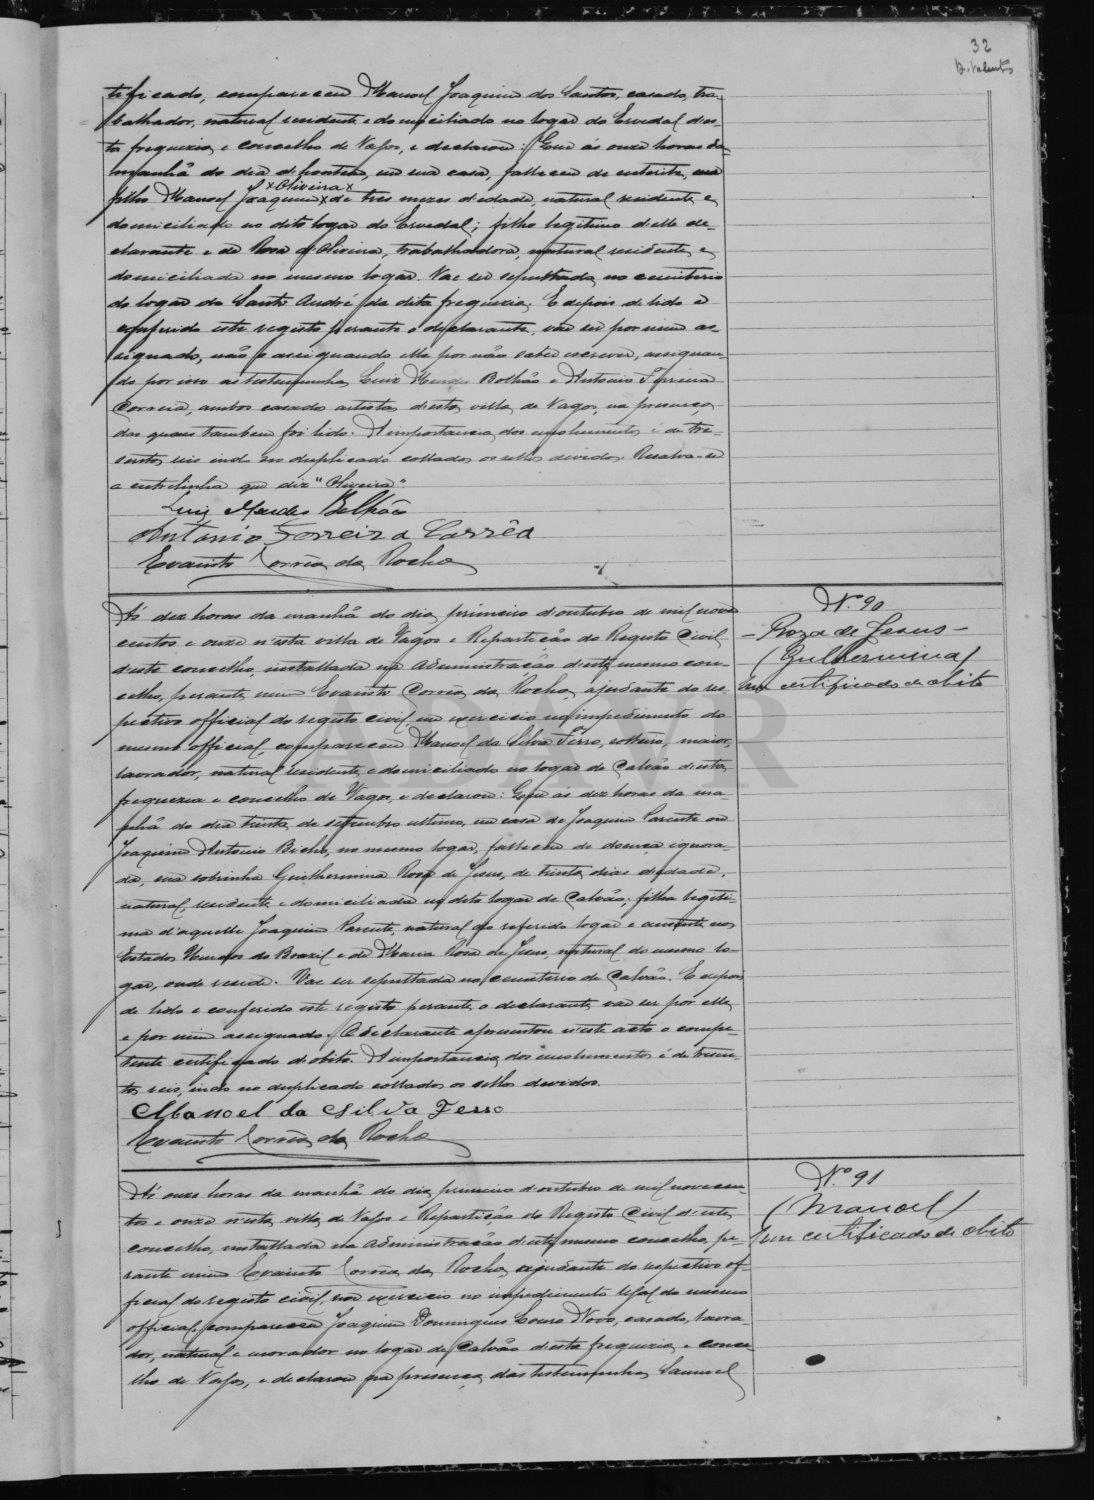 32
tificado, compareceu Manoel Joaquim dos Santos, casado, tra-
balhador, natural residente e domiciliado no logar do Ervedal d'es-
ta freguezia e concelho de Vagos, e declarou: Que ás onze horas da
manhã do dia d'hontem, em sua casa, falleceu de enterite, seu
×Oliveira×
filho Manoel Joaquim × de tres mezes d'edade, natural residente e
domiciliado no dito logar do Ervedal; filho legitimo d'elle de-
clarante e de Rosa d'Oliveira, trabalhadora, natural residente e
domiciliada no mesmo logar. Vae ser sepultado no cemiterio
do logar de Santo André da dita freguezia. E depois de lido e
conferido este registo perante o declarante, vae ser por mim as-
signado, não o assignando elle por não saber escrever, assignan-
do por isso as testemunhas Luiz Mendes Bolhão e Antonio Ferreira
Correia, ambos casados artistas d'esta villa de Vagos, na presença
das quaes tambem foi lido. A importancia dos emolumentos é de tre-
sentos reis indo no duplicado collados os sellos devidos. Resalva-se
a entrelinha que diz "Oliveira".
Luiz Mendes Bolhão
Antonio Ferreira Corrêa
Evaristo Corrêa da Rocha
Ás dez horas da manhã do dia primeiro d'outubro de mil nove
centos e onze n'esta villa de Vagos e Repartição do Registo Civil
d'este concelho, installada na Administração d'este mesmo con-
celho, perante mim Evaristo Corrêa da Rocha, ajudante do res-
pectivo official do registo civil, em exercicio no impedimento do
mesmo official, compareceu Manoel da Silva Ferro, solteiro, maior,
lavrador, natural residente e domiciliado no logar de Calvão d'esta
freguezia e concelho de Vagos, e declarou: Que ás dez horas da ma-
nhã do dia trinta de setembro ultimo, em casa de Joaquim Parente ou
Joaquim Antonio Bicho, no mesmo logar, falleceu de doença ignora-
da, sua sobrinha Guilhermina Rosa de Jesus, de trinta dias d'edade,
natural, residente e domiciliada no dito logar de Calvão; filha legiti-
ma d'aquelle Joaquim Parente, natural do referido logar e ausente nos
Estados Unidos do Brazil e de Maria Rosa de Jesus, natural do mesmo lo-
gar, onde reside. Vae ser sepultada no cemiterio de Calvão. E depois
de lido e conferido este registo perante o declarante vae ser por elle
e por mim assignado. O declarante apresentou n'este acto o compe-
tente certificado d'obito. A importancia dos emolumentos é de tresen-
tos reis, indo no duplicado collados os sellos devidos.
Manoel da Silva Ferro
Evaristo Corrêa da Rocha
Nº 90
- Roza de Jesus -
(Guilhermina)
Um certificado de obito
Ás onze horas da manhã do dia primeiro d'outubro de mil novecen-
tos e onze n'esta villa de Vagos e Repartição do Registo Civil d'este
concelho, installada na Administração d'este mesmo concelho, pe-
rante mim Evaristo Corrêa da Rocha, ajudante do respectivo of-
ficial do registo civil, em exercicio no impedimento legal do mesmo
official, compareceu Joaquim Domingues Couro Novo, casado, lavra-
dor, natural e morador no logar de Calvão d'esta freguezia e conce
lho de Vagos, e declarou na presença das testemunhas Samuel
Nº 91
(Manoel)
Um certificado de obito